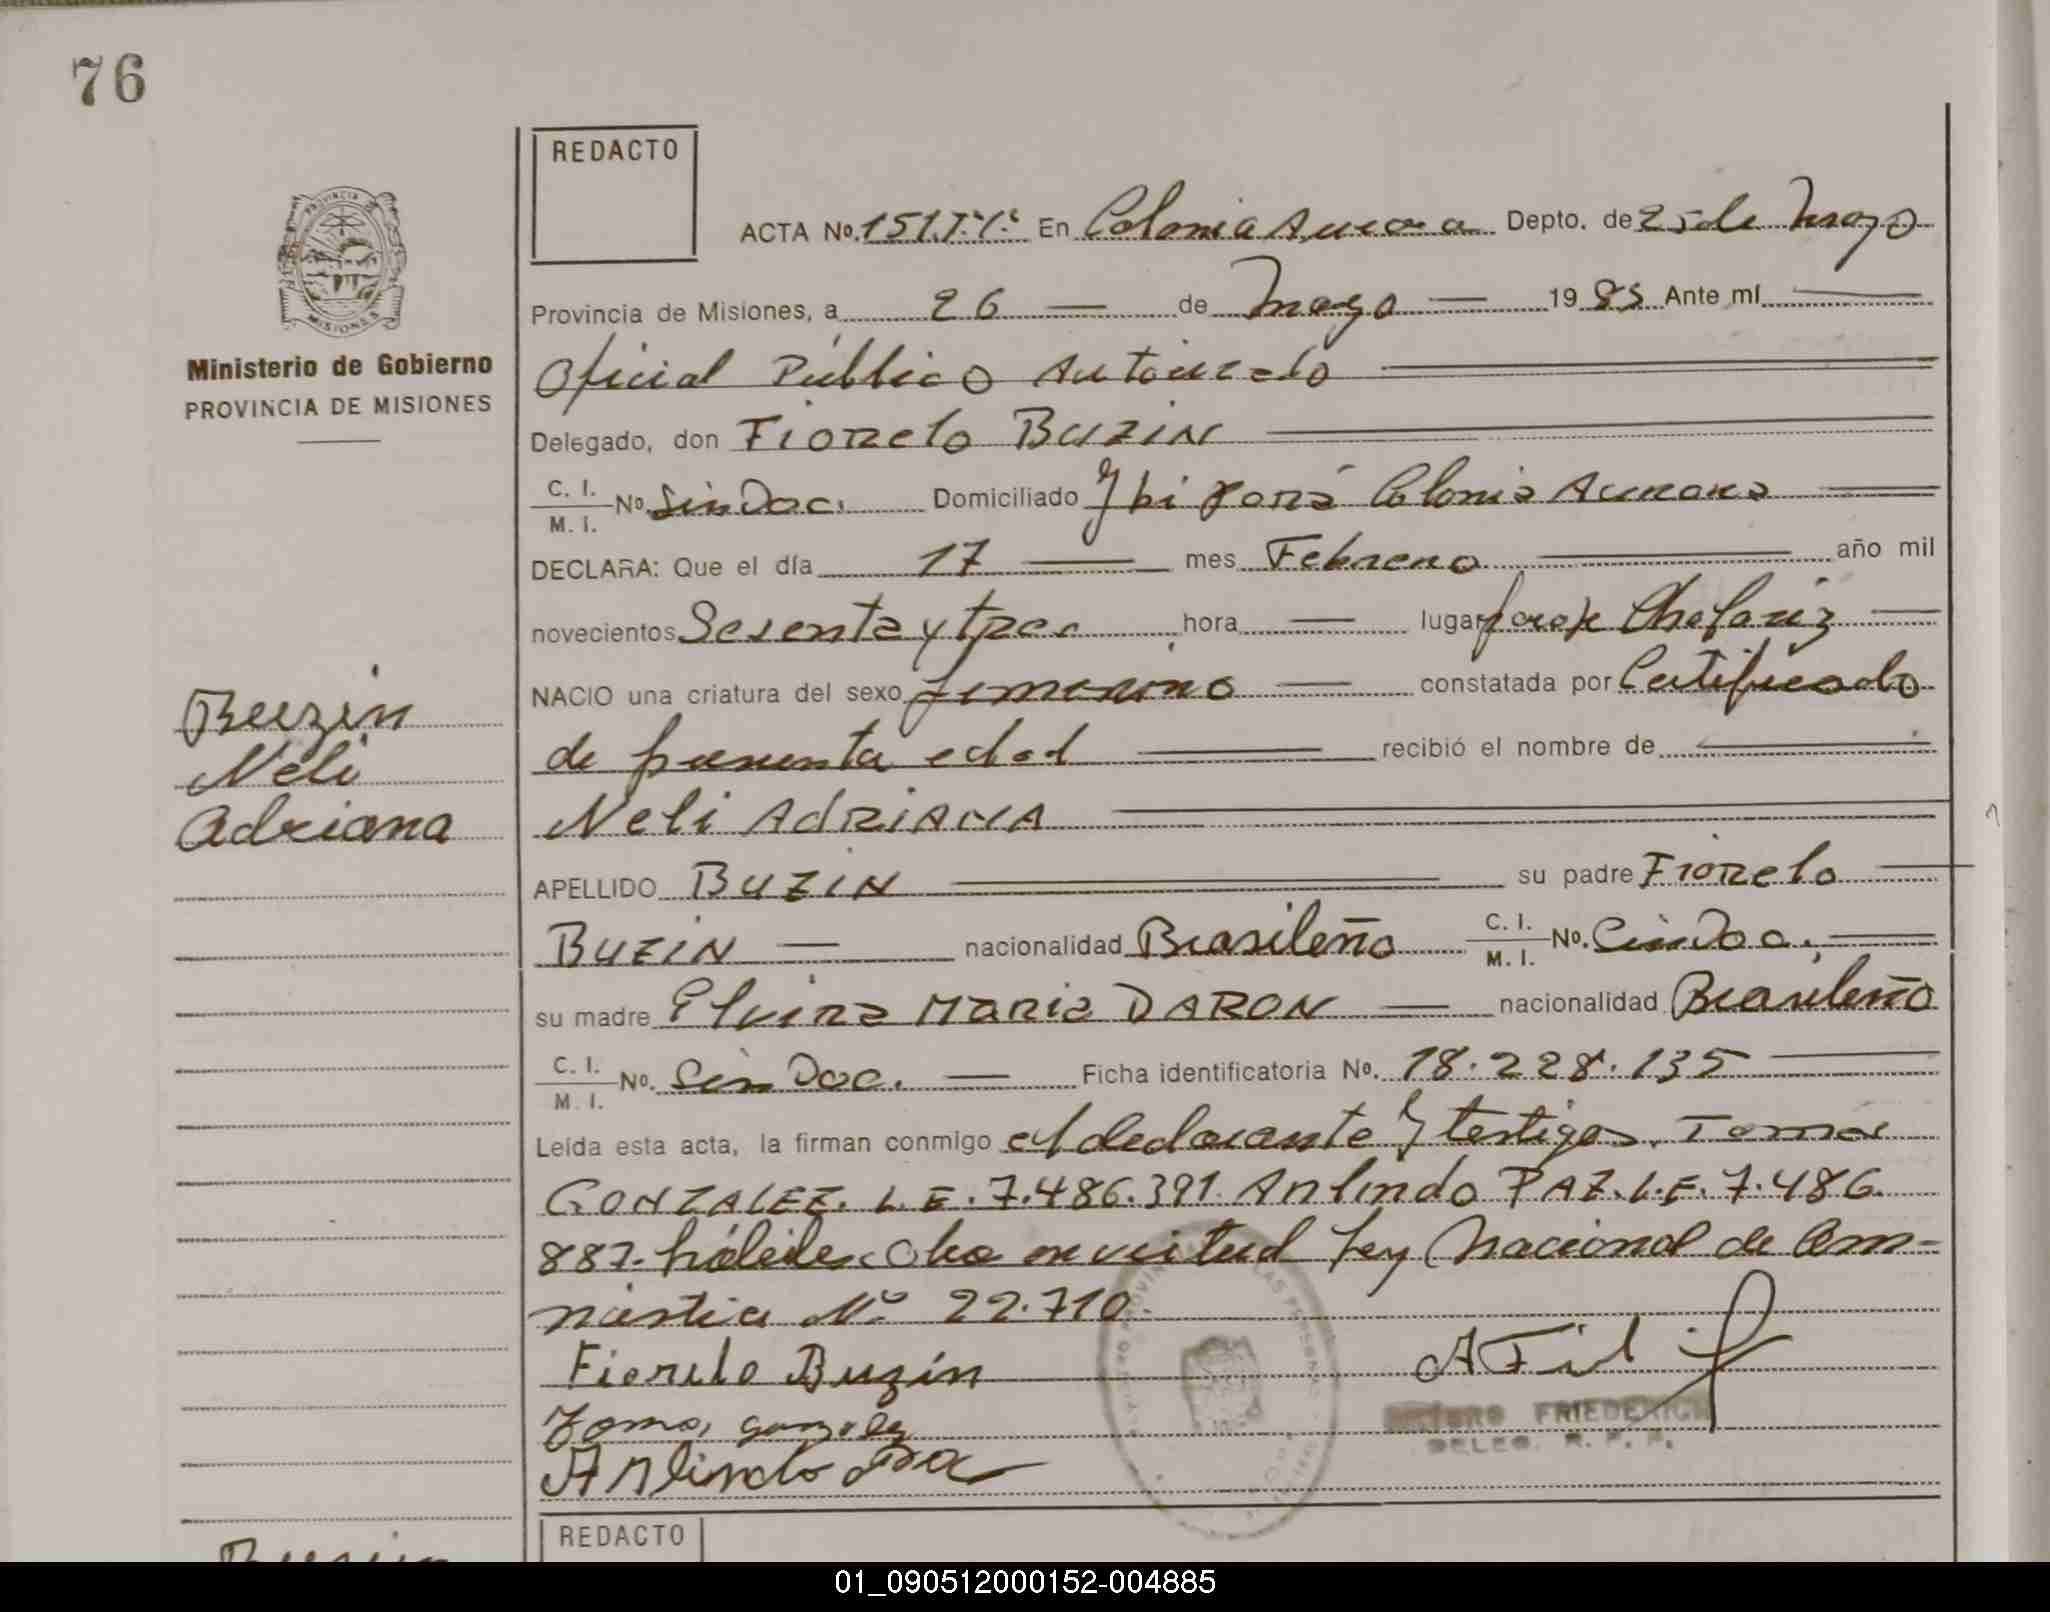 76
REDACTO
ACTA No. 151. T.º 1.º En Colonia Aurora Depto. de 25 de Mayo
Provincia de Misiones, a 26 de Mayo 1985 Ante mí
Oficial Público Autorizado
Delegado, don Fiorelo BUZIN
C. I.
M. I. No. Sin Doc. Domiciliado Colonia Aurora
DECLARA: Que el día 17 mes Febrero año mil
novecientos Sesenta y tres hora lugar
NACIO una criatura del sexo femenino constatada por Certificado
de presunta edad recibió el nombre de
Neli AdRiANA
APELLIDO BUZIN su padre Fiorelo
BUZIN nacionalidad Brasileño C. I.
M. I. No. Sin Doc.
su madre Elvira Maria DARON nacionalidad Brasileño
C. I.
M. I. No. Sin Doc. Ficha identificatoria No. 18.228.135
Leída esta acta, la firman conmigo el declarante y testigos. Tomás
GONZALEZ. L.E. 7.486.391. Arlindo PAZ. L.E. 7.486.
887. hábiles en virtud Ley Nacional de Am-
nistia Nº 22.710.
Fiorelo Buzin
Tomas gonzalez
Arlindo Paz
ARTURO FRIEDERICH
DELEG. R. P. P.
PROVINCIA
MISIONES
Ministerio de Gobierno
PROVINCIA DE MISIONES
Buzin
Neli
Adriana
REDACTO
Buzin
01_090512000152-004885